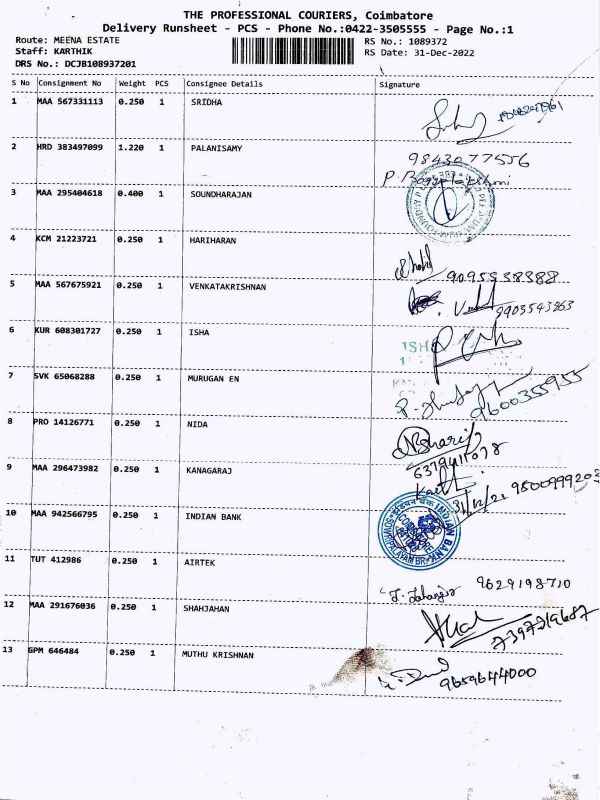 THE PROFESSIONAL COURIERS, Coimbatore
Delivery Runsheet - PCS - Phone No.:0422-3505555 - Page No.:1
Route: MEENA ESTATE
RS No.: 1089372
Staff: KARTHIK
RS Date: 31-Dec-2022
DRS No.: DCJB108937201
S No Consignment No Weight PCS Consignee Details Signature
1 MAA 567331113 0.250 1 SRIDHA
2 HRD 383497099 1.220 1 PALANISAMY 9843077556
3 MAA 295404618 0.400 1 SOUNDHARAJAN
4 KCM 21223721 0.250 1 HARIHARAN 9095538388
5 MAA 567675921 0.250 1 VENKATAKRISHNAN 9903543563
6 KUR 608301727 0.250 1 ISHA
7 SVK 65068288 0.250 1 MURUGAN EN 9600355955
8 PRO 14126771 0.250 1 NIDA
6379411078
9 MAA 296473982 0.250 1 KANAGARAJ 9500999203
10 MAA 942566795 0.250 1 INDIAN BANK 31/12/22
INDIAN BANK
11 TUT 412986 0.250 1 AIRTEK 9629198710
12 MAA 291676036 0.250 1 SHAHJAHAN 7397219687
13 GPM 646484 0.250 1 MUTHU KRISHNAN 9659644000